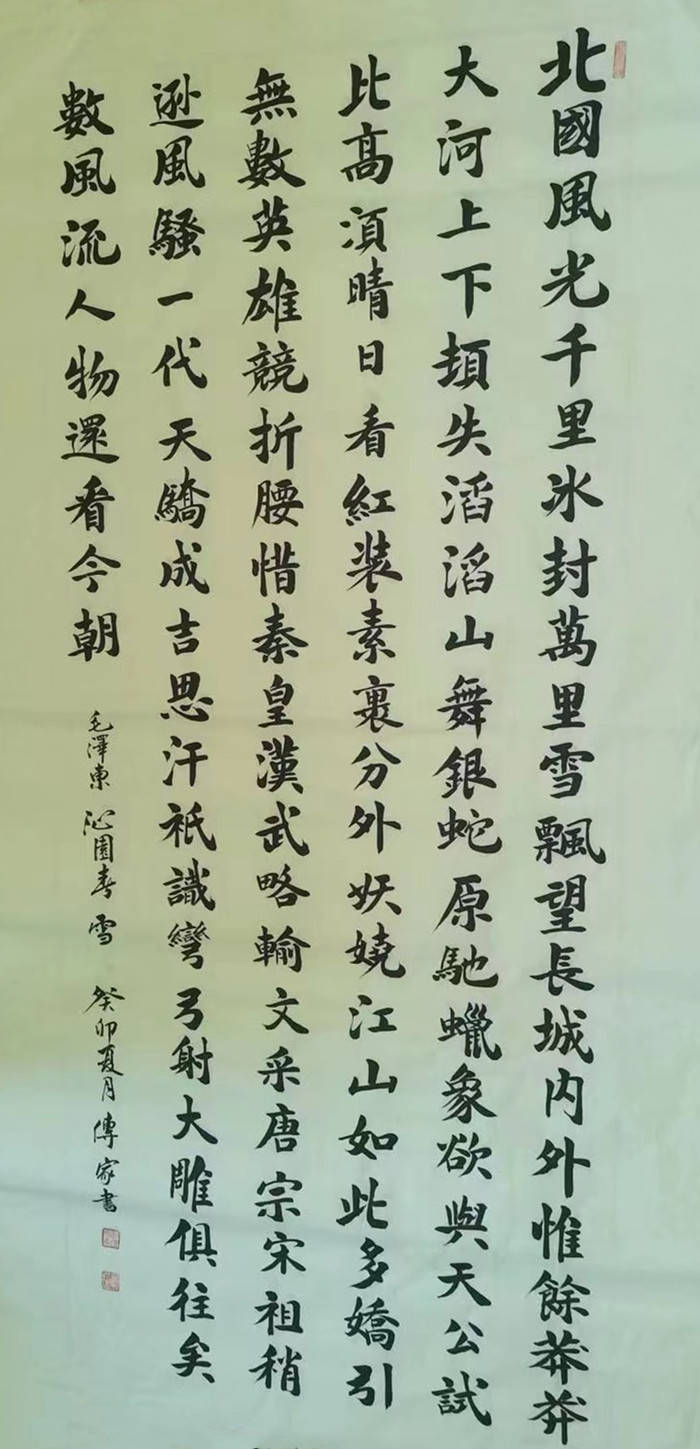 北國風光千里冰封萬里雪飄望長城内外惟餘莽莽
大河上下頓失滔滔山舞銀蛇原馳蠟象欲與天公試
比高須晴日看紅装素裹分外妖嬈江山如此多嬌引
無數英雄競折腰惜秦皇漢武略輸文采唐宗宋祖稍
遜風騷一代天驕成吉思汗祇識彎弓射大雕俱往矣
數風流人物還看今朝
毛澤東 沁園春雪 癸卯夏月傳家書